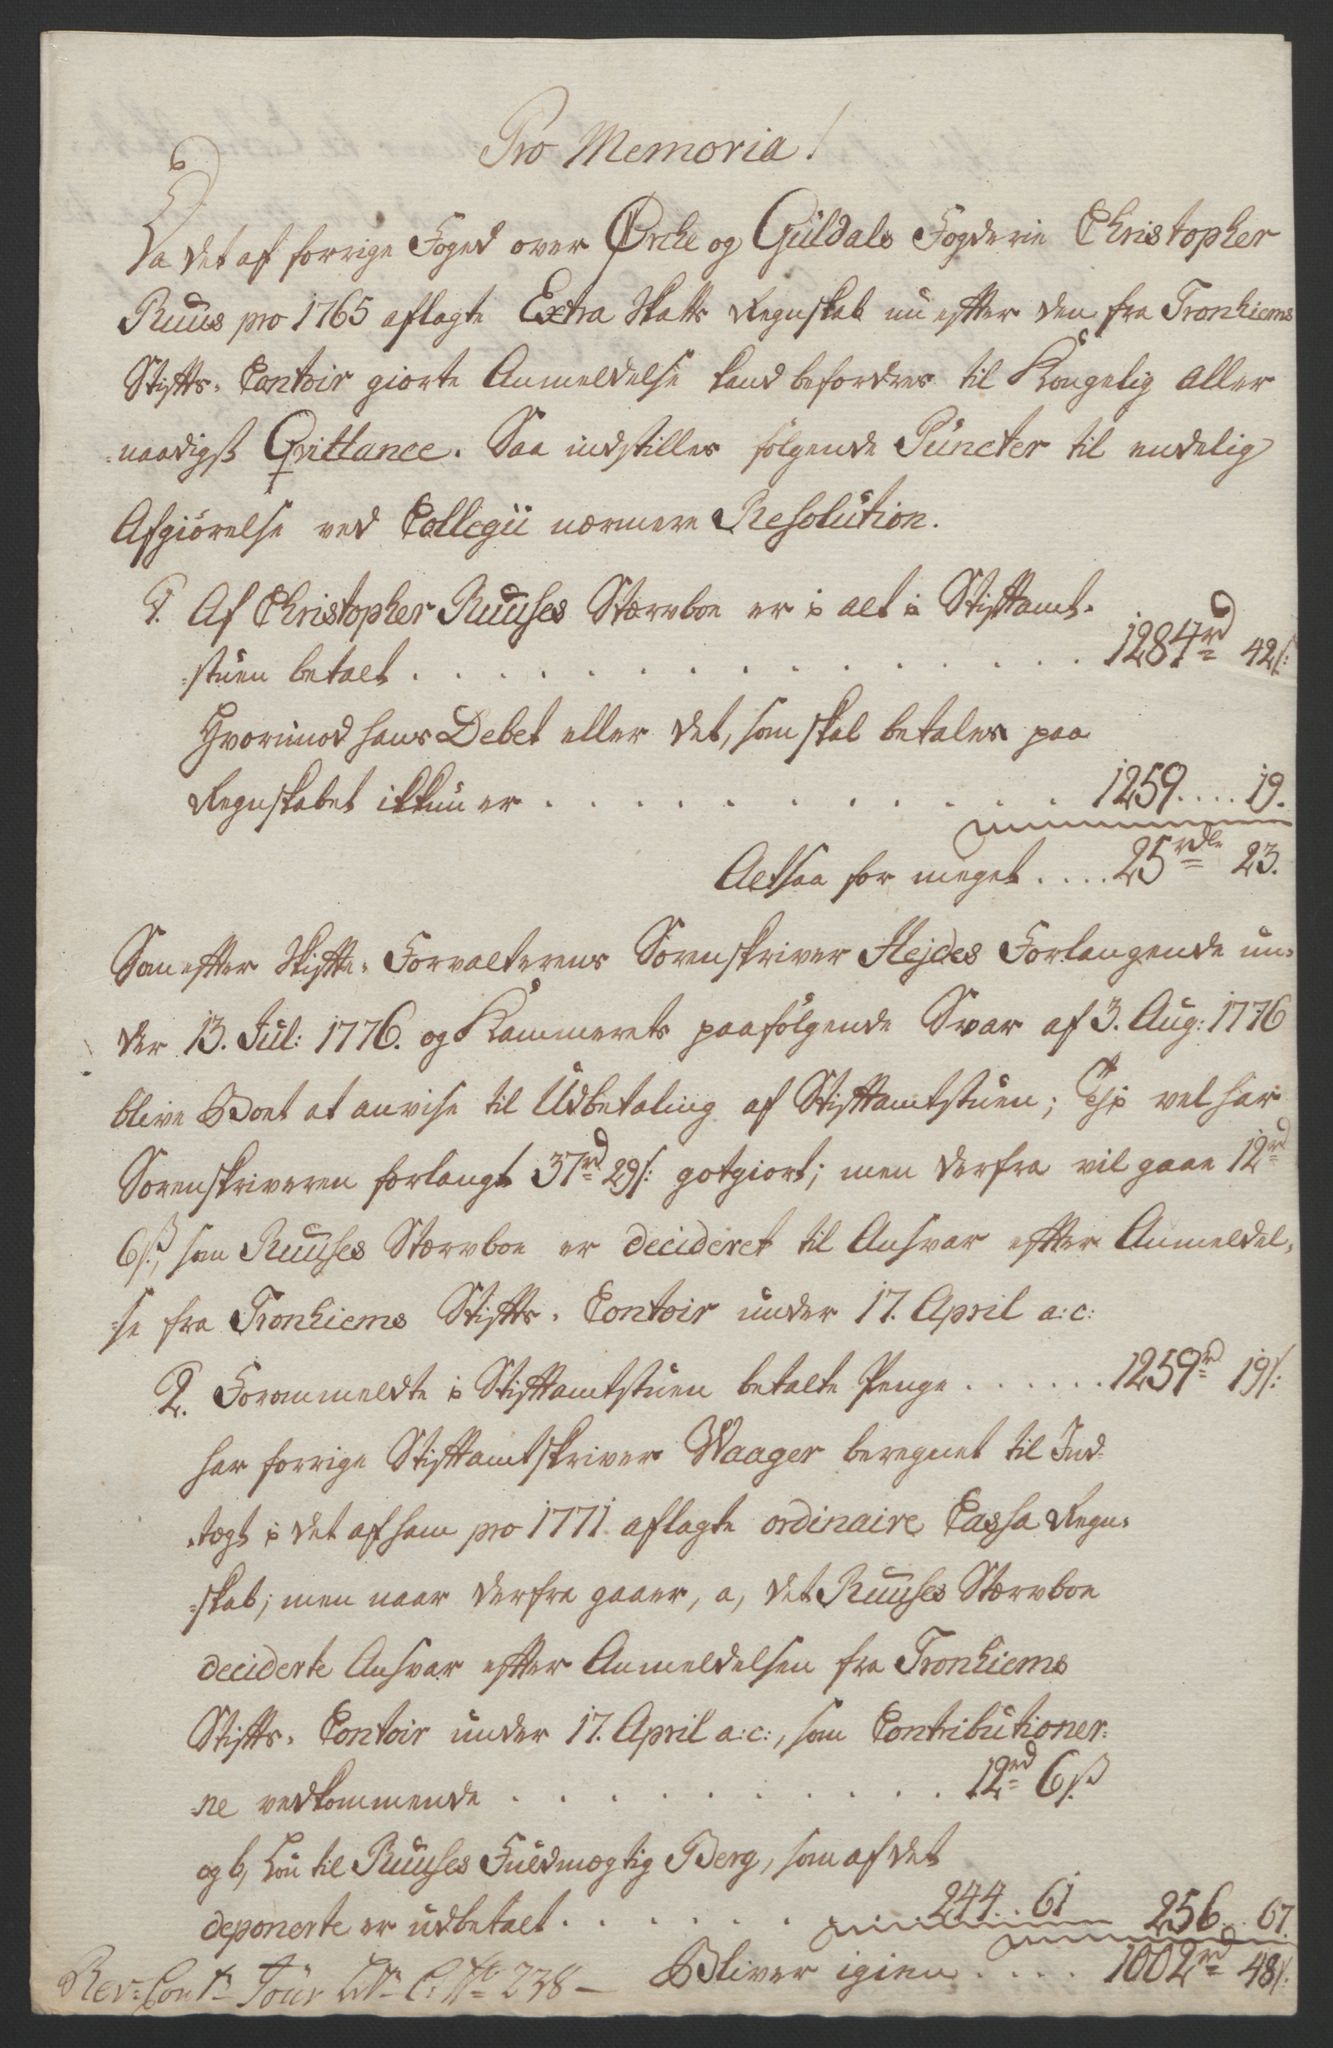 Pro Memoria!
Da det af forrige Foged over Ørche og Güldals Fogderie Christopher
Ruus pro 1765 aflagte Extra Skatts Regnskab nu efter den fra Tronhiems
Stifts-Contoir giorte Anmeldelse kand befordres til Kongelig Aller
naadigst Qvittance. Saa indstilles følgende Püncter til endelig
Afgiørelse ved Collegii nærmere Resolution.
1. Af Christopher Ruuses Stervboe er i alt i Stiftamt-
stuen betalt . . . . . . . . 1284rd 42s:
Hvorimod hans Debet eller det, som skal betales paa
Regnskabet ikkun er . . . . . . . . 1259 .... 19.
Altsaa for meget .... 25rdlr 23.
Som efter Skifte-Forvalterens Sorenskriver Hejdes Forlangende un-
der 13. Jul: 1776. og Kammerets paafølgende Svar af 3. Aug: 1776
blive Boet at anvise til Udbetaling af Stiftamtstuen; Thi vel har
Sorenskriveren forlangt 37rd 29s: gotgiort; men derfra vil gaae 12rd
6s, som Ruuses Stervboe er decideret til Ansvar efter Anmeldel-
se fra Tronhiems Stifts-Contoir under 17. April a:c:
2. Forommeldte i Stiftamtstuen betalte Penge ...... 1259rd 19s:
har forrige Stiftamtskriver Waager beregnet til Ind-
tægt i det af ham pro 1771 aflagte ordinaire Cassa Regn-
skab; men naar derfra gaaer, a, det Ruuses Stervboe
deciderte Ansvar efter Anmeldelsen fra Tronhiems
Stifts-Contoir under 17. April a:c:, som Contributioner-
ne vedkommende . . . . . . . . 12rd 6s
og b, Løn til Ruuses Fuldmægtig Berg, som af det
deponerte er udbetalt . . . . . . 244 .. 61 256 .. 67.
Bliver igien .... 1002rd 48s:
Rev: Cont: Jour No 238